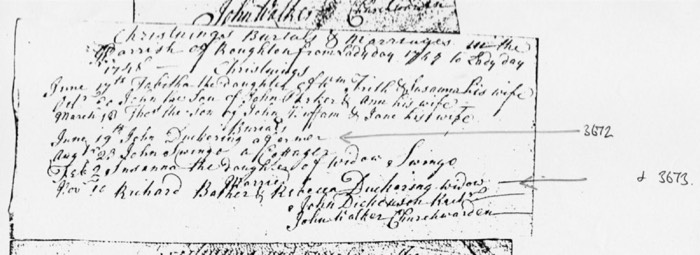 John Walker Churchwarden
Christnings Burials & Marriages in the
Parrish of Roughton from Ladyday 1747 to Lady day
1748 Christnings
June 17th Tabitha the Daughter of Wm Frith & Susanna his wife
John the Son of John Parker & Ann his wife
March 18 Thos the Son of John & Jane his wife
Burials
June 19th John Duckering a farmer 3672
Augst 23 John Swingo a Cottager
Feb 2 Susanna the daughter of Widow Swingo
Married
Nov 10 Richard Barker & Rebecca Duckering widow & 3673.
John Dickenson Rectr
John Walker Churchwarden